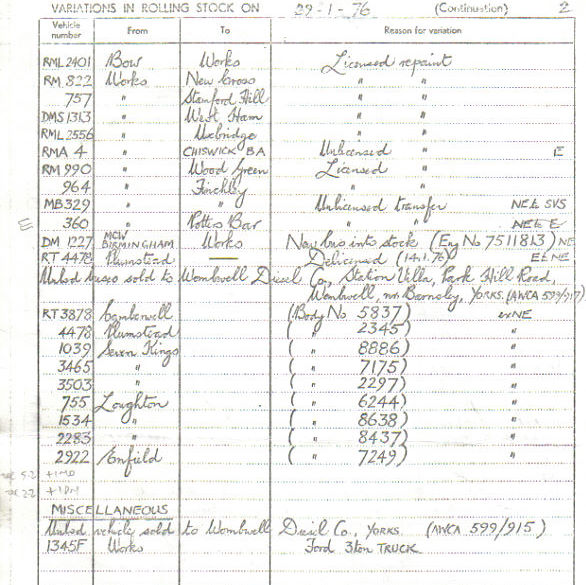 VARIATIONS IN ROLLING STOCK ON 29-1-76 (Continuation) 2
Vehicle number From To Reason for variation
RML 2401 Bow Works Licensed repaint
RM 822 Works New Cross " "
757 " Stamford Hill " "
DMS 1313 " West Ham " "
RML 2556 " Uxbridge " "
RMA 4 " CHISWICK BA Unlicensed " E
RM 990 " Wood Green Licensed "
964 " Finchley " "
MB 329 " " Unlicensed transfer NEL SVS
E 360 " Potters Bar " " NEL E
DM 1227 MCW BIRMINGHAM Works New bus into stock (Eng No 7511813) NE
RT 4478 Plumstead — Delicensed (14.1.76) EL NE
Unlsd buses sold to Wombwell Diesel Co., Station Villa, Park Hill Road,
Wombwell, nr. Barnsley, YORKS. (AWCA 599/917)
RT 3878 Camberwell (Body No 5837) exNE
4478 Plumstead ( " 2345) "
1039 Seven Kings ( " 8886) "
3465 " ( " 7175) "
3503 " ( " 2297) "
755 Loughton ( " 6244) "
1534 " ( " 8638) "
2283 " ( " 8437) "
2922 Enfield ( " 7249) "
MISCELLANEOUS
Unlsd vehicle sold to Wombwell Diesel Co., YORKS. (AWCA 599/915)
1345F Works Ford 3ton TRUCK